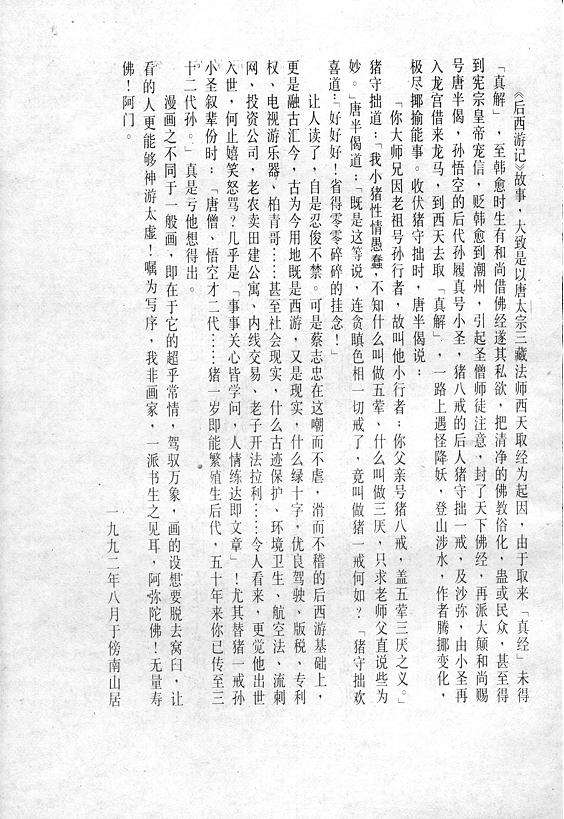 《后西游记》故事，大致是以唐太宗三藏法师西天取经为起因，由于取来「真经」未得
「真解」，至韩愈时生有和尚借佛经遂其私欲，把清净的佛教俗化，蛊或民众，甚至得
到宪宗皇帝宠信，贬韩愈到潮州，引起圣僧师徒注意，封了天下佛经，再派大颠和尚赐
号唐半偈，孙悟空的后代孙履真号小圣，猪八戒的后人猪守拙一戒，及沙弥，由小圣再
入龙宫借来龙马，到西天去取「真解」，一路上遇怪降妖，登山涉水，作者腾挪变化，
极尽揶揄能事。收伏猪守拙时，唐半偈说：
「你大师兄因老祖号孙行者，故叫他小行者；你父亲号猪八戒，盖五荤三厌之义。」
猪守拙道：「我小猪性情愚蠢，不知什么叫做五荤，什么叫做三厌，只求老师父直说些为
妙。」唐半偈道：「既是这等说，连贪瞋色相一切戒了，竟叫做猪一戒何如？」猪守拙欢
喜道：「好好好！省得零零碎碎的挂念！」
让人读了，自是忍俊不禁。可是蔡志忠在这嘲而不虐，滑而不稽的后西游基础上，
更是融古汇今，古为今用地既是西游，又是现实，什么绿十字，优良驾驶、版税、专利
权、电视游乐器、柏青哥……甚至社会现实，什么古迹保护、环境卫生、航空法、流刺
网，投资公司，老农卖田建公寓，内线交易、老子开法拉利……令人看来，更觉他出世
入世，何止嬉笑怒骂？几乎是「事事关心皆学问，人情练达即文章」！尤其替猪一戒孙
小圣叙辈份时：「唐僧、悟空才二代……猪一岁即能繁殖生后代，五十年来你已传至三
十二代孙。」真是亏他想得出。
漫画之不同于一般画，即在于它的超乎常情，驾驭万象，画的设想要脱去窝臼，让
看的人更能够神游太虚！嘱为写序，我非画家，一派书生之见耳，阿弥陀佛！无量寿
佛！阿门。
一九九二年八月于傍南山居